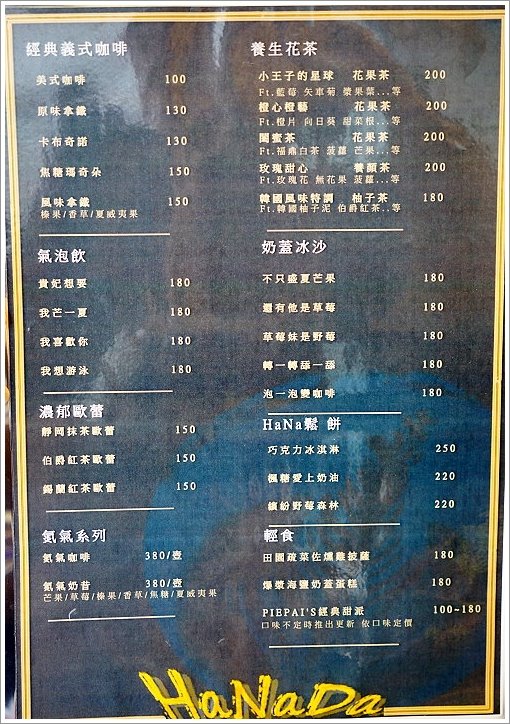 經典義式咖啡
美式咖啡 100
原味拿鐵 130
卡布奇諾 130
焦糖瑪奇朵 150
風味拿鐵 150
榛果/香草/夏威夷果
氣泡飲
貴妃想要 180
我芒一夏 180
我喜歡你 180
我想游泳 180
濃郁歐蕾
靜岡抹茶歐蕾 150
伯爵紅茶歐蕾 150
錫蘭紅茶歐蕾 150
氮氣系列
氮氣咖啡 380/壺
氮氣奶昔 380/壺
芒果/草莓/榛果/香草/焦糖/夏威夷果
養生花茶
小王子的星球 花果茶 200
Ft.藍莓 矢車菊 漿果葉...等
橙心橙藝 花果茶 200
Ft.橙片 向日葵 甜菜根...等
閨蜜茶 花果茶 200
Ft.福鼎白茶 菠蘿 芒果...等
玫瑰甜心 養顏茶 200
Ft.玫瑰花 無花果 菠蘿...等
韓國風味特調 柚子茶 180
Ft.韓國柚子泥 伯爵紅茶..等
奶蓋冰沙
不只盛夏芒果 180
還有他是草莓 180
草莓妹是野莓 180
轉一轉舔一舔 180
泡一泡變咖啡 180
HaNa鬆 餅
巧克力冰淇淋 250
楓糖愛上奶油 220
繽紛野莓森林 220
輕食
田園疏菜佐燻雞披薩 180
爆漿海鹽奶蓋蛋糕 180
PIEPAI'S經典甜派 100~180
口味不定時推出更新 依口味定價
HaNaDa